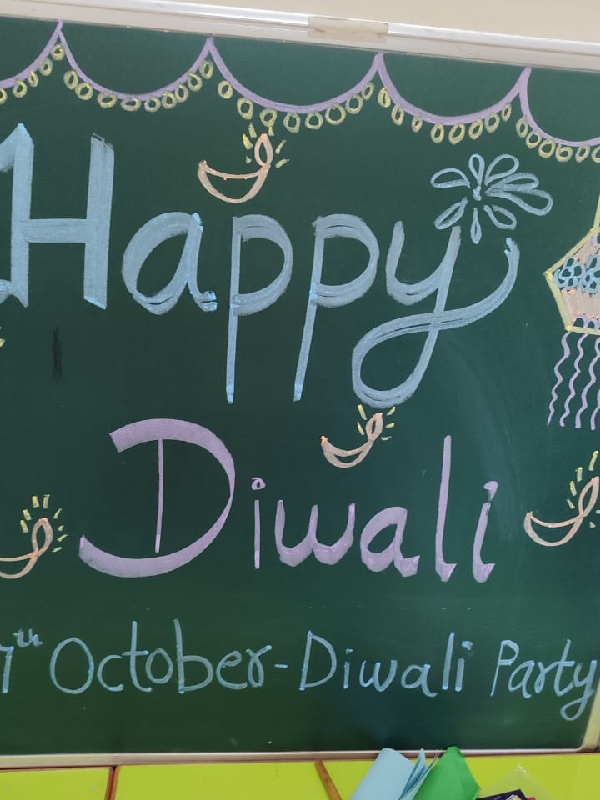 Happy
Diwali
7th October-Diwali Party